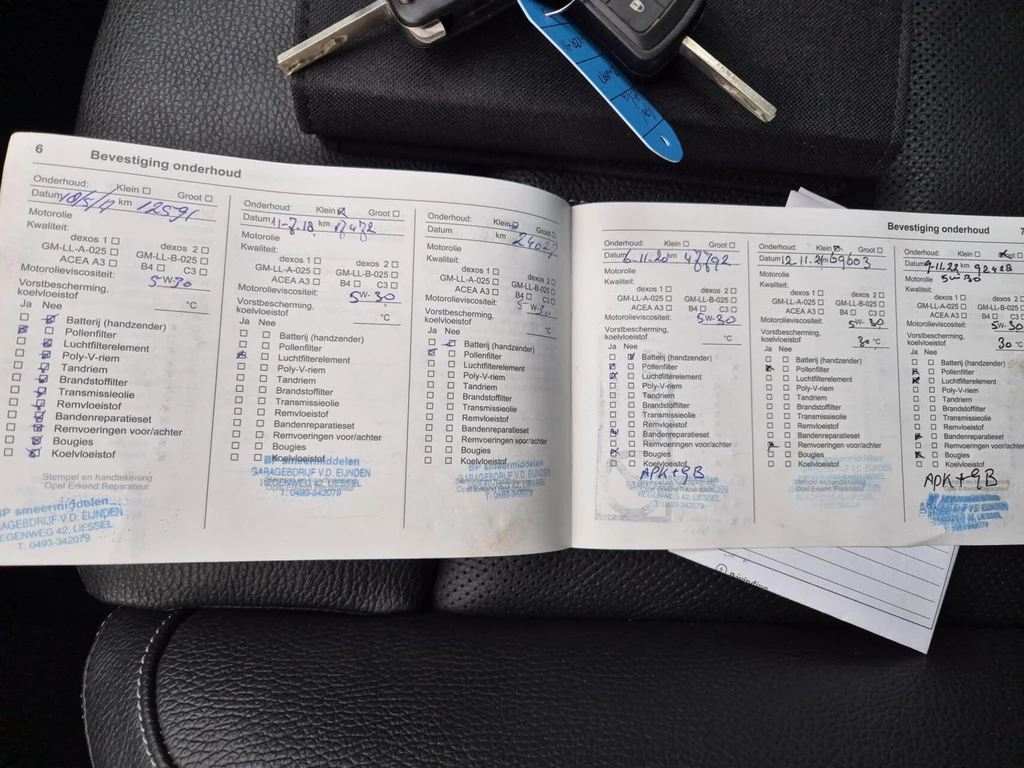 6 Bevestiging onderhoud
Onderhoud: Klein Groot
Datum km
Motorolie
Kwaliteit:
dexos 1 dexos 2
GM-LL-A-025 GM-LL-B-025
ACEA A3 B4 C3
Motorolieviscositeit:
5W-30
Vorstbescherming,
koelvloeistof °C
Ja Nee
Batterij (handzender)
Pollenfilter
Luchtfilterelement
Poly-V-riem
Tandriem
Brandstoffilter
Transmissieolie
Remvloeistof
Bandenreparatieset
Remvoeringen voor/achter
Bougies
Koelvloeistof
Stempel en handtekening
Opel Erkend Reparateur
BP smeermiddelen
GARAGEBEDRIJF V.D. EIJNDEN
EGENWEG 42, LIESSEL
T: 0493-342079
Onderhoud: Klein Groot
Datum km
Motorolie
Kwaliteit:
dexos 1 dexos 2
GM-LL-A-025 GM-LL-B-025
ACEA A3 B4 C3
Motorolieviscositeit:
5W-30
Vorstbescherming,
koelvloeistof °C
Ja Nee
Batterij (handzender)
Pollenfilter
Luchtfilterelement
Poly-V-riem
Tandriem
Brandstoffilter
Transmissieolie
Remvloeistof
Bandenreparatieset
Remvoeringen voor/achter
Bougies
Koelvloeistof
BP smeermiddelen
GARAGEBEDRIJF V.D. EIJNDEN
LIESSEL
T: 0493-342079
Onderhoud: Klein Groot
Datum km 24027
Motorolie
Kwaliteit:
dexos 1 dexos 2
GM-LL-A-025 GM-LL-B-025
ACEA A3 B4 C3
Motorolieviscositeit:
5W-30
Vorstbescherming,
koelvloeistof °C
Ja Nee
Batterij (handzender)
Pollenfilter
Luchtfilterelement
Poly-V-riem
Tandriem
Brandstoffilter
Transmissieolie
Remvloeistof
Bandenreparatieset
Remvoeringen voor/achter
Bougies
Koelvloeistof
BP smeermiddelen
Bevestiging onderhoud 7
Onderhoud: Klein Groot
Datum 6-11-20 km
Motorolie
Kwaliteit:
dexos 1 dexos 2
GM-LL-A-025 GM-LL-B-025
ACEA A3 B4 C3
Motorolieviscositeit: 5W-30
Vorstbescherming,
koelvloeistof °C
Ja Nee
Batterij (handzender)
Pollenfilter
Luchtfilterelement
Poly-V-riem
Tandriem
Brandstoffilter
Transmissieolie
Remvloeistof
Bandenreparatieset
Remvoeringen voor/achter
Bougies
Koelvloeistof
APK+gB
REGENWEG 42, LIESSEL
T: 0493-342079
Onderhoud: Klein Groot
Datum 12-11-21 km 69603
Motorolie
Kwaliteit:
dexos 1 dexos 2
GM-LL-A-025 GM-LL-B-025
ACEA A3 B4 C3
Motorolieviscositeit:
5W-30
Vorstbescherming,
koelvloeistof 30 °C
Ja Nee
Batterij (handzender)
Pollenfilter
Luchtfilterelement
Poly-V-riem
Tandriem
Brandstoffilter
Transmissieolie
Remvloeistof
Bandenreparatieset
Remvoeringen voor/achter
Bougies
Koelvloeistof
Onderhoud: Klein
Datum 9-11-22 km 92428
Motorolie 5W-30
Kwaliteit:
dexos 1 dexos 2
GM-LL-A-025 GM-LL-B-025
ACEA A3 B4 C3
Motorolieviscositeit:
5W-30
Vorstbescherming,
koelvloeistof 30 °C
Ja Nee
Batterij (handzender)
Pollenfilter
Luchtfilterelement
Poly-V-riem
Tandriem
Brandstoffilter
Transmissieolie
Remvloeistof
Bandenreparatieset
Remvoeringen voor/achter
Bougies
Koelvloeistof
APK+gB
LIESSEL